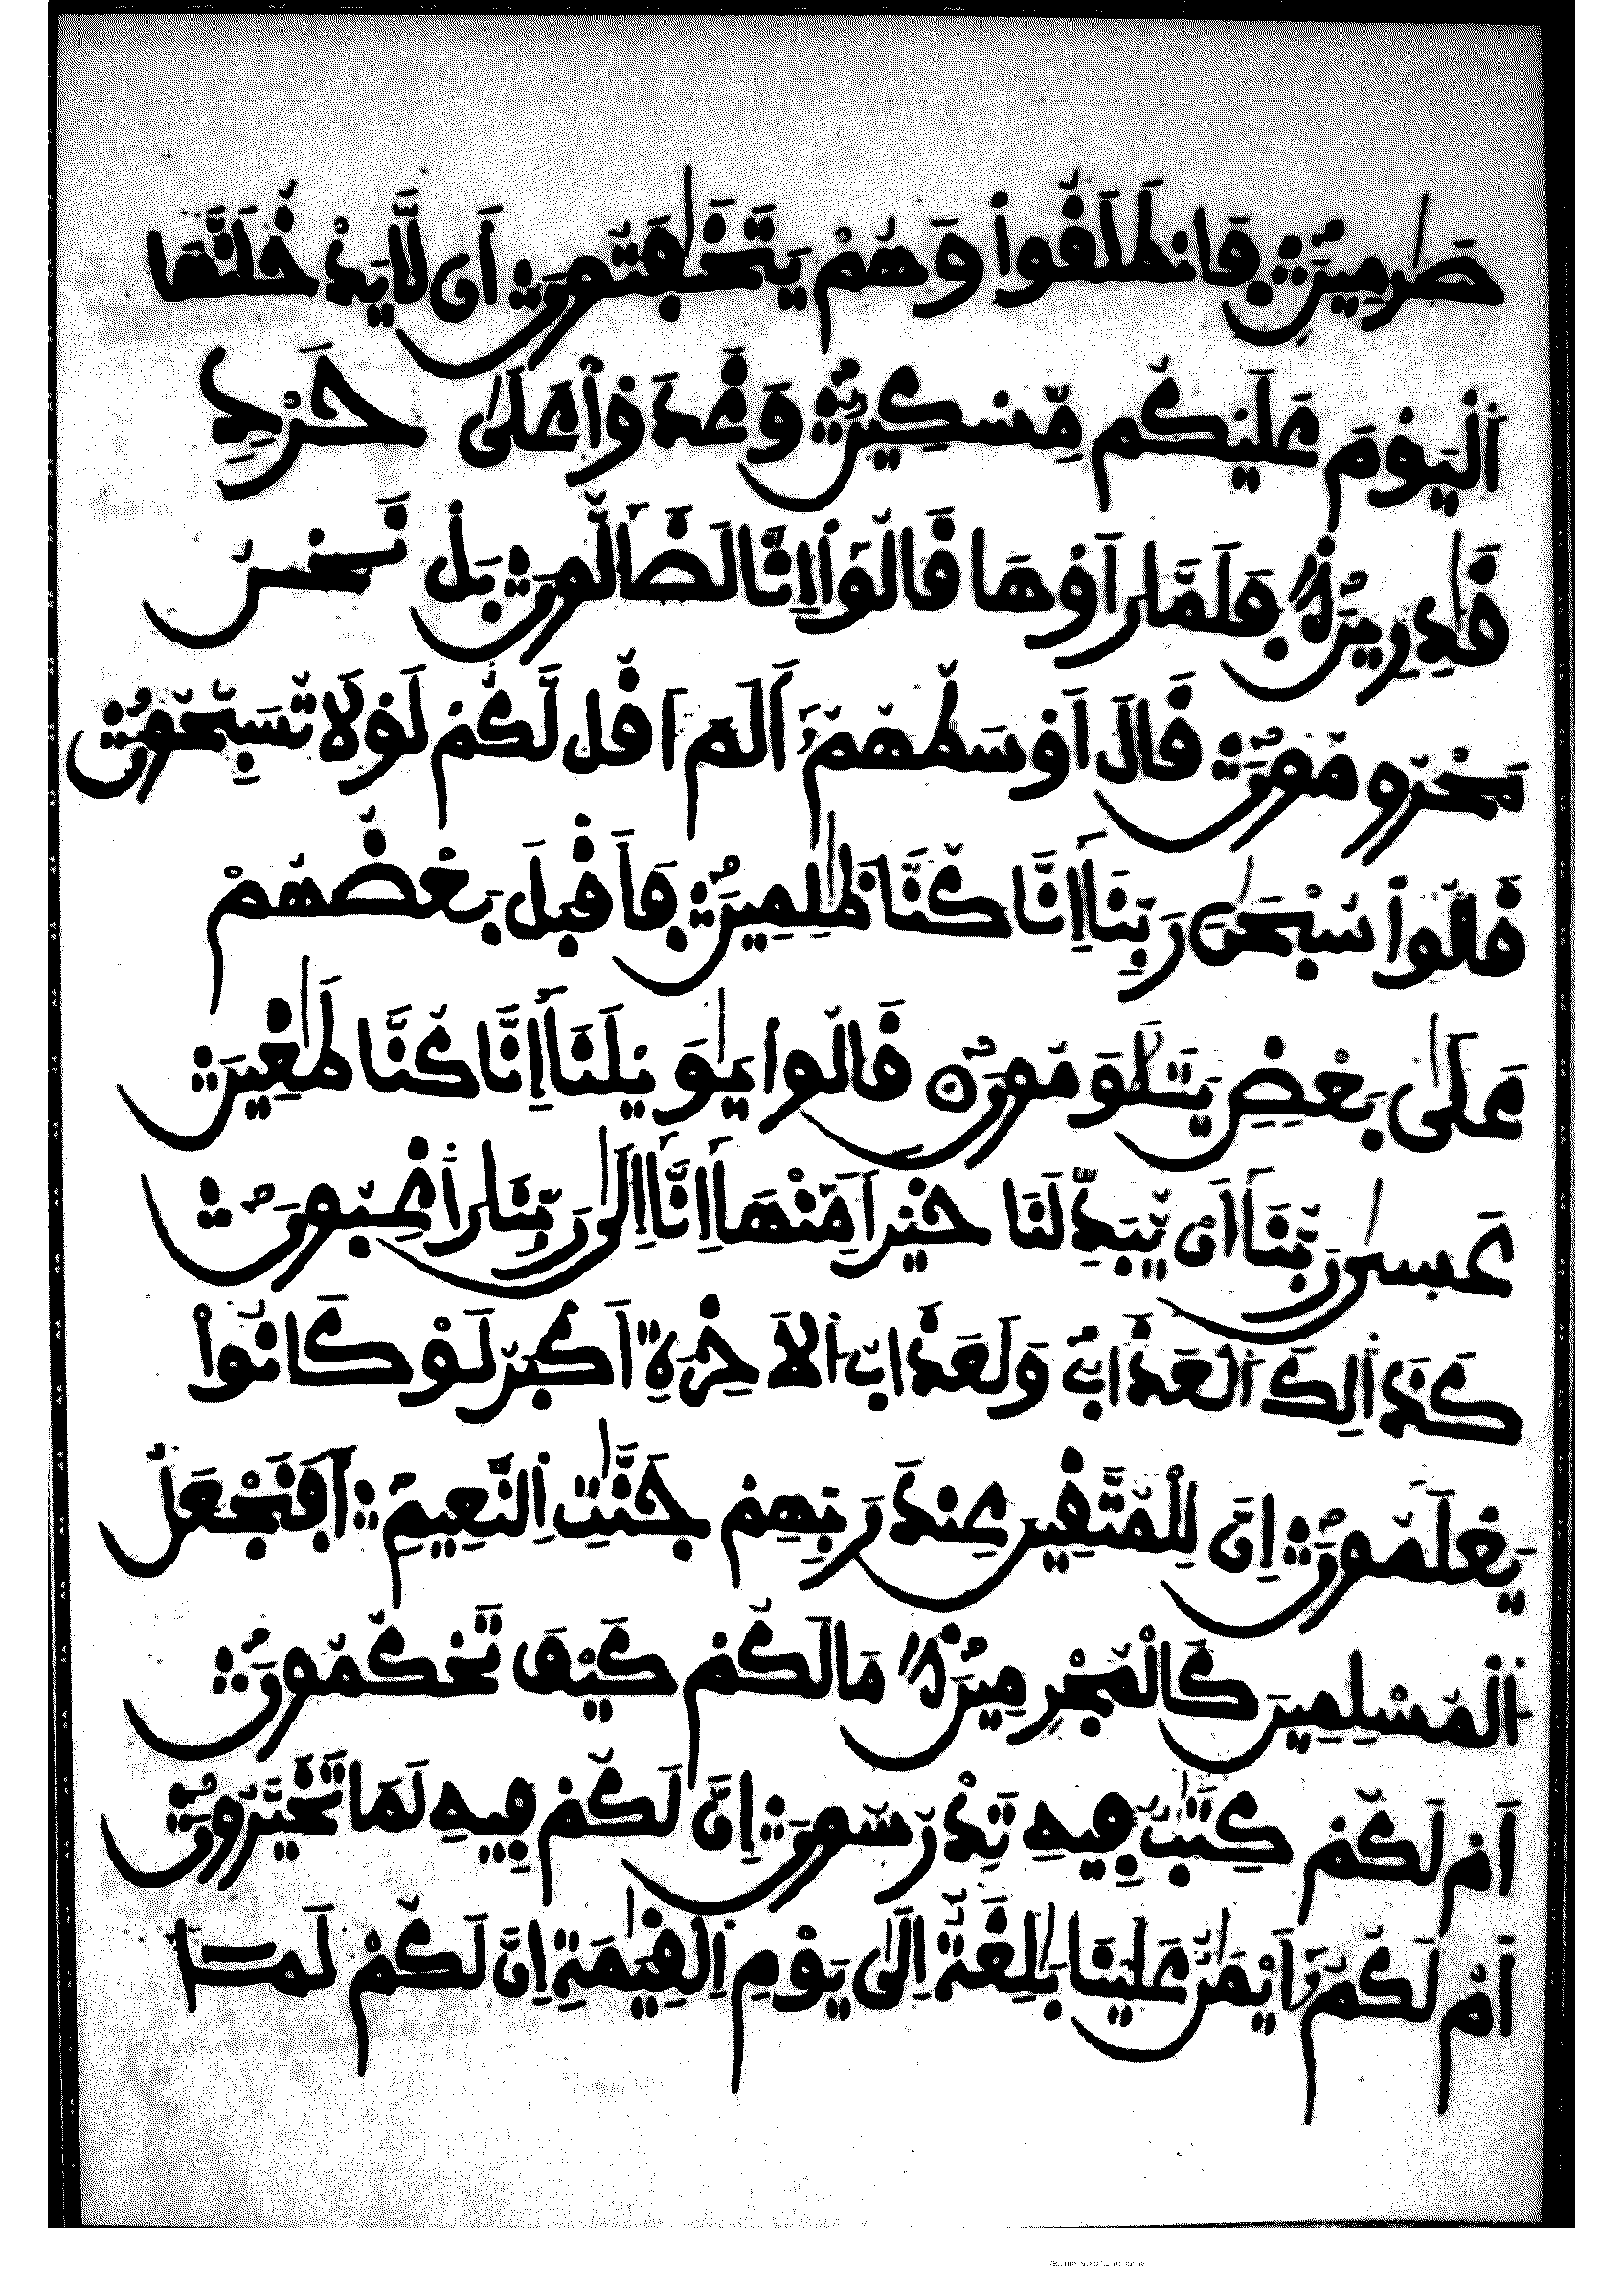 صَٰرِمِينَ فَانطَلَقُوا وَهُمْ يَتَخَٰفَتُونَ أَن لَّا يَدْخُلَنَّهَا
الْيَوْمَ عَلَيْكُم مِّسْكِينٌ وَغَدَوْا عَلَىٰ حَرْدٍ
قَٰدِرِينَ فَلَمَّا رَأَوْهَا قَالُوا إِنَّا لَضَالُّونَ بَلْ نَحْنُ
مَحْرُومُونَ قَالَ أَوْسَطُهُمْ أَلَمْ أَقُل لَّكُمْ لَوْلَا تُسَبِّحُونَ
قَالُوا سُبْحَٰنَ رَبِّنَا إِنَّا كُنَّا ظَٰلِمِينَ فَأَقْبَلَ بَعْضُهُمْ
عَلَىٰ بَعْضٍ يَتَلَٰوَمُونَ قَالُوا يَٰوَيْلَنَا إِنَّا كُنَّا طَٰغِينَ
عَسَىٰ رَبُّنَا أَن يُبَدِّلَنَا خَيْرًا مِّنْهَا إِنَّا إِلَىٰ رَبِّنَا رَاغِبُونَ
كَذَالِكَ الْعَذَابُ وَلَعَذَابُ الْآخِرَةِ أَكْبَرُ لَوْ كَانُوا
يَعْلَمُونَ إِنَّ لِلْمُتَّقِينَ عِندَ رَبِّهِمْ جَنَّٰتِ النَّعِيمِ أَفَنَجْعَلُ
الْمُسْلِمِينَ كَالْمُجْرِمِينَ مَا لَكُمْ كَيْفَ تَحْكُمُونَ
أَمْ لَكُمْ كِتَٰبٌ فِيهِ تَدْرُسُونَ إِنَّ لَكُمْ فِيهِ لَمَا تَخَيَّرُونَ
أَمْ لَكُمْ أَيْمَٰنٌ عَلَيْنَا بَٰلِغَةٌ إِلَىٰ يَوْمِ الْقِيَٰمَةِ إِنَّ لَكُمْ لَمَا